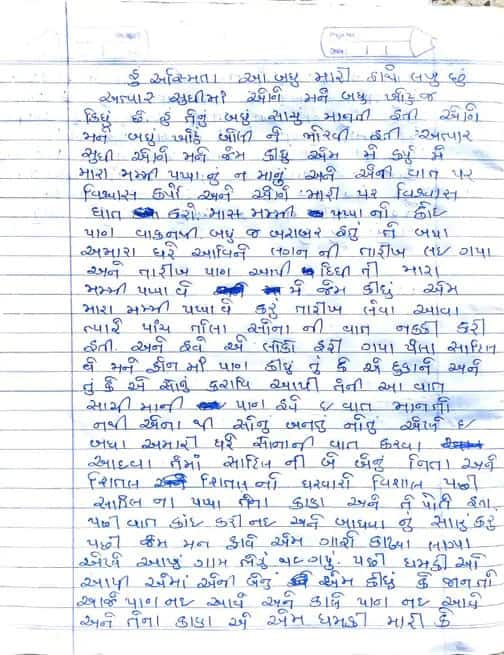 Page No.
Date
હું અસ્મિતા આ બધુ મારી હાથે લખુ છું
અત્યાર સુધીમાં એણે મને બધુ ખોટુ જ
કિધું કે હું તેનું બધું સાચુ માનતી હતી એણે
મને બધુ ખોટુ બોલી ને ભોરવી હતી અત્યાર
સુધી એણે મને જેમ કીધુ એમ મેં કર્યુ મેં
મારા મમ્મી પપ્પા નું ન માનુ અને એની વાત પર
વિશ્વાસ કર્યો અને એણે મારી પર વિશ્વાસ
ઘાત કરો મારા મમ્મી પપ્પા નો કોઈ
પણ વાકનથી બધુ જ બરાબર હતું તે બધા
અમારા ઘરે આવિને લગન ની તારીખ લઇ ગયા
અને તારીખ પણ આપી દિધી તી મારા
મમ્મી પપ્પા યે મેં જેમ કીધું એમ
મારા મમ્મી પપ્પા યે કરું તારીખ લેવા આવા
ત્યારે પાંચ તોલા સોના ની વાત નક્કી કરી
હતી અને હવે એ લોકો ફરી ગયા પેલા સાહિલ
યે મને ફોન માં પણ કીધું તું કે એ દુકાને અને
તું કે એ સોનું કરાવિ આપી તેની આ વાત
સાચી માની પણ હવે ઇ વાત માનતો
નથી એના થી સોનુ બનતું નોતું એણે ઇ
બધા અમારી ઘરે સોનાની વાત કરવા
આવ્યા તેમાં સાહિલ ની બે બેનું નિતા અને
શિતલ શિતલ નો ઘરવારો વિશાલ પછી
સાહિલ ના પપ્પા તેના કાકા અને તે પોતે હતા
પછી વાત કાંઇ કરી નઇ અને બાધવા નું સાલુ કરું
પછી જેમ મન ફાવે એમ ગારો કાઢવા લાગ્યા
એણે આખું ગામ ભેગું થઇ ગયું પછી ધમકી ઓ
આપી એમાં એની બેનું એમ કીધું કે જાન તો
આજે પણ નઇ આવે અને કાલે પણ નઇ આવે
અને તેના કાકા એ એમ ધમકી મારી કે